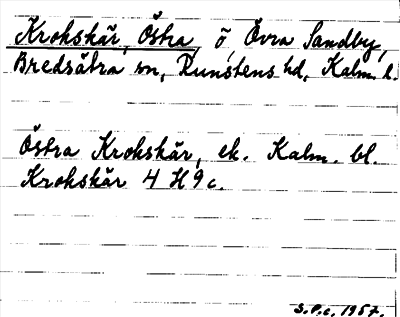 Krokskär, Östra, ö, Övra Sandby,
Bredsätra sn, Runstens hd, Kalm. l.
Östra Krokskär, ek. Kalm. bl.
Krokskär 4 H 9 c.
S.P.c. 1957.